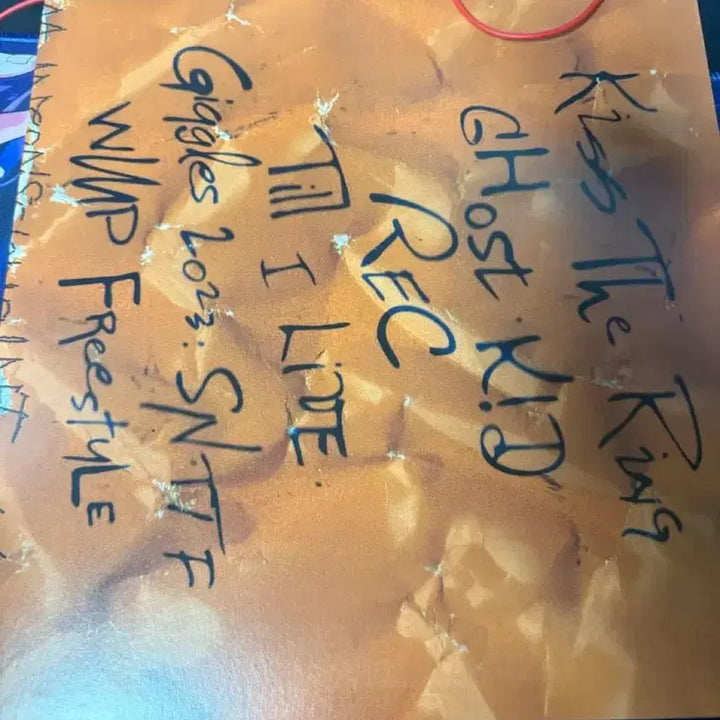 Kiss The Ring
GHost. K!D
REC
Till I
Giggles 2023. SNTF
FReestyLE